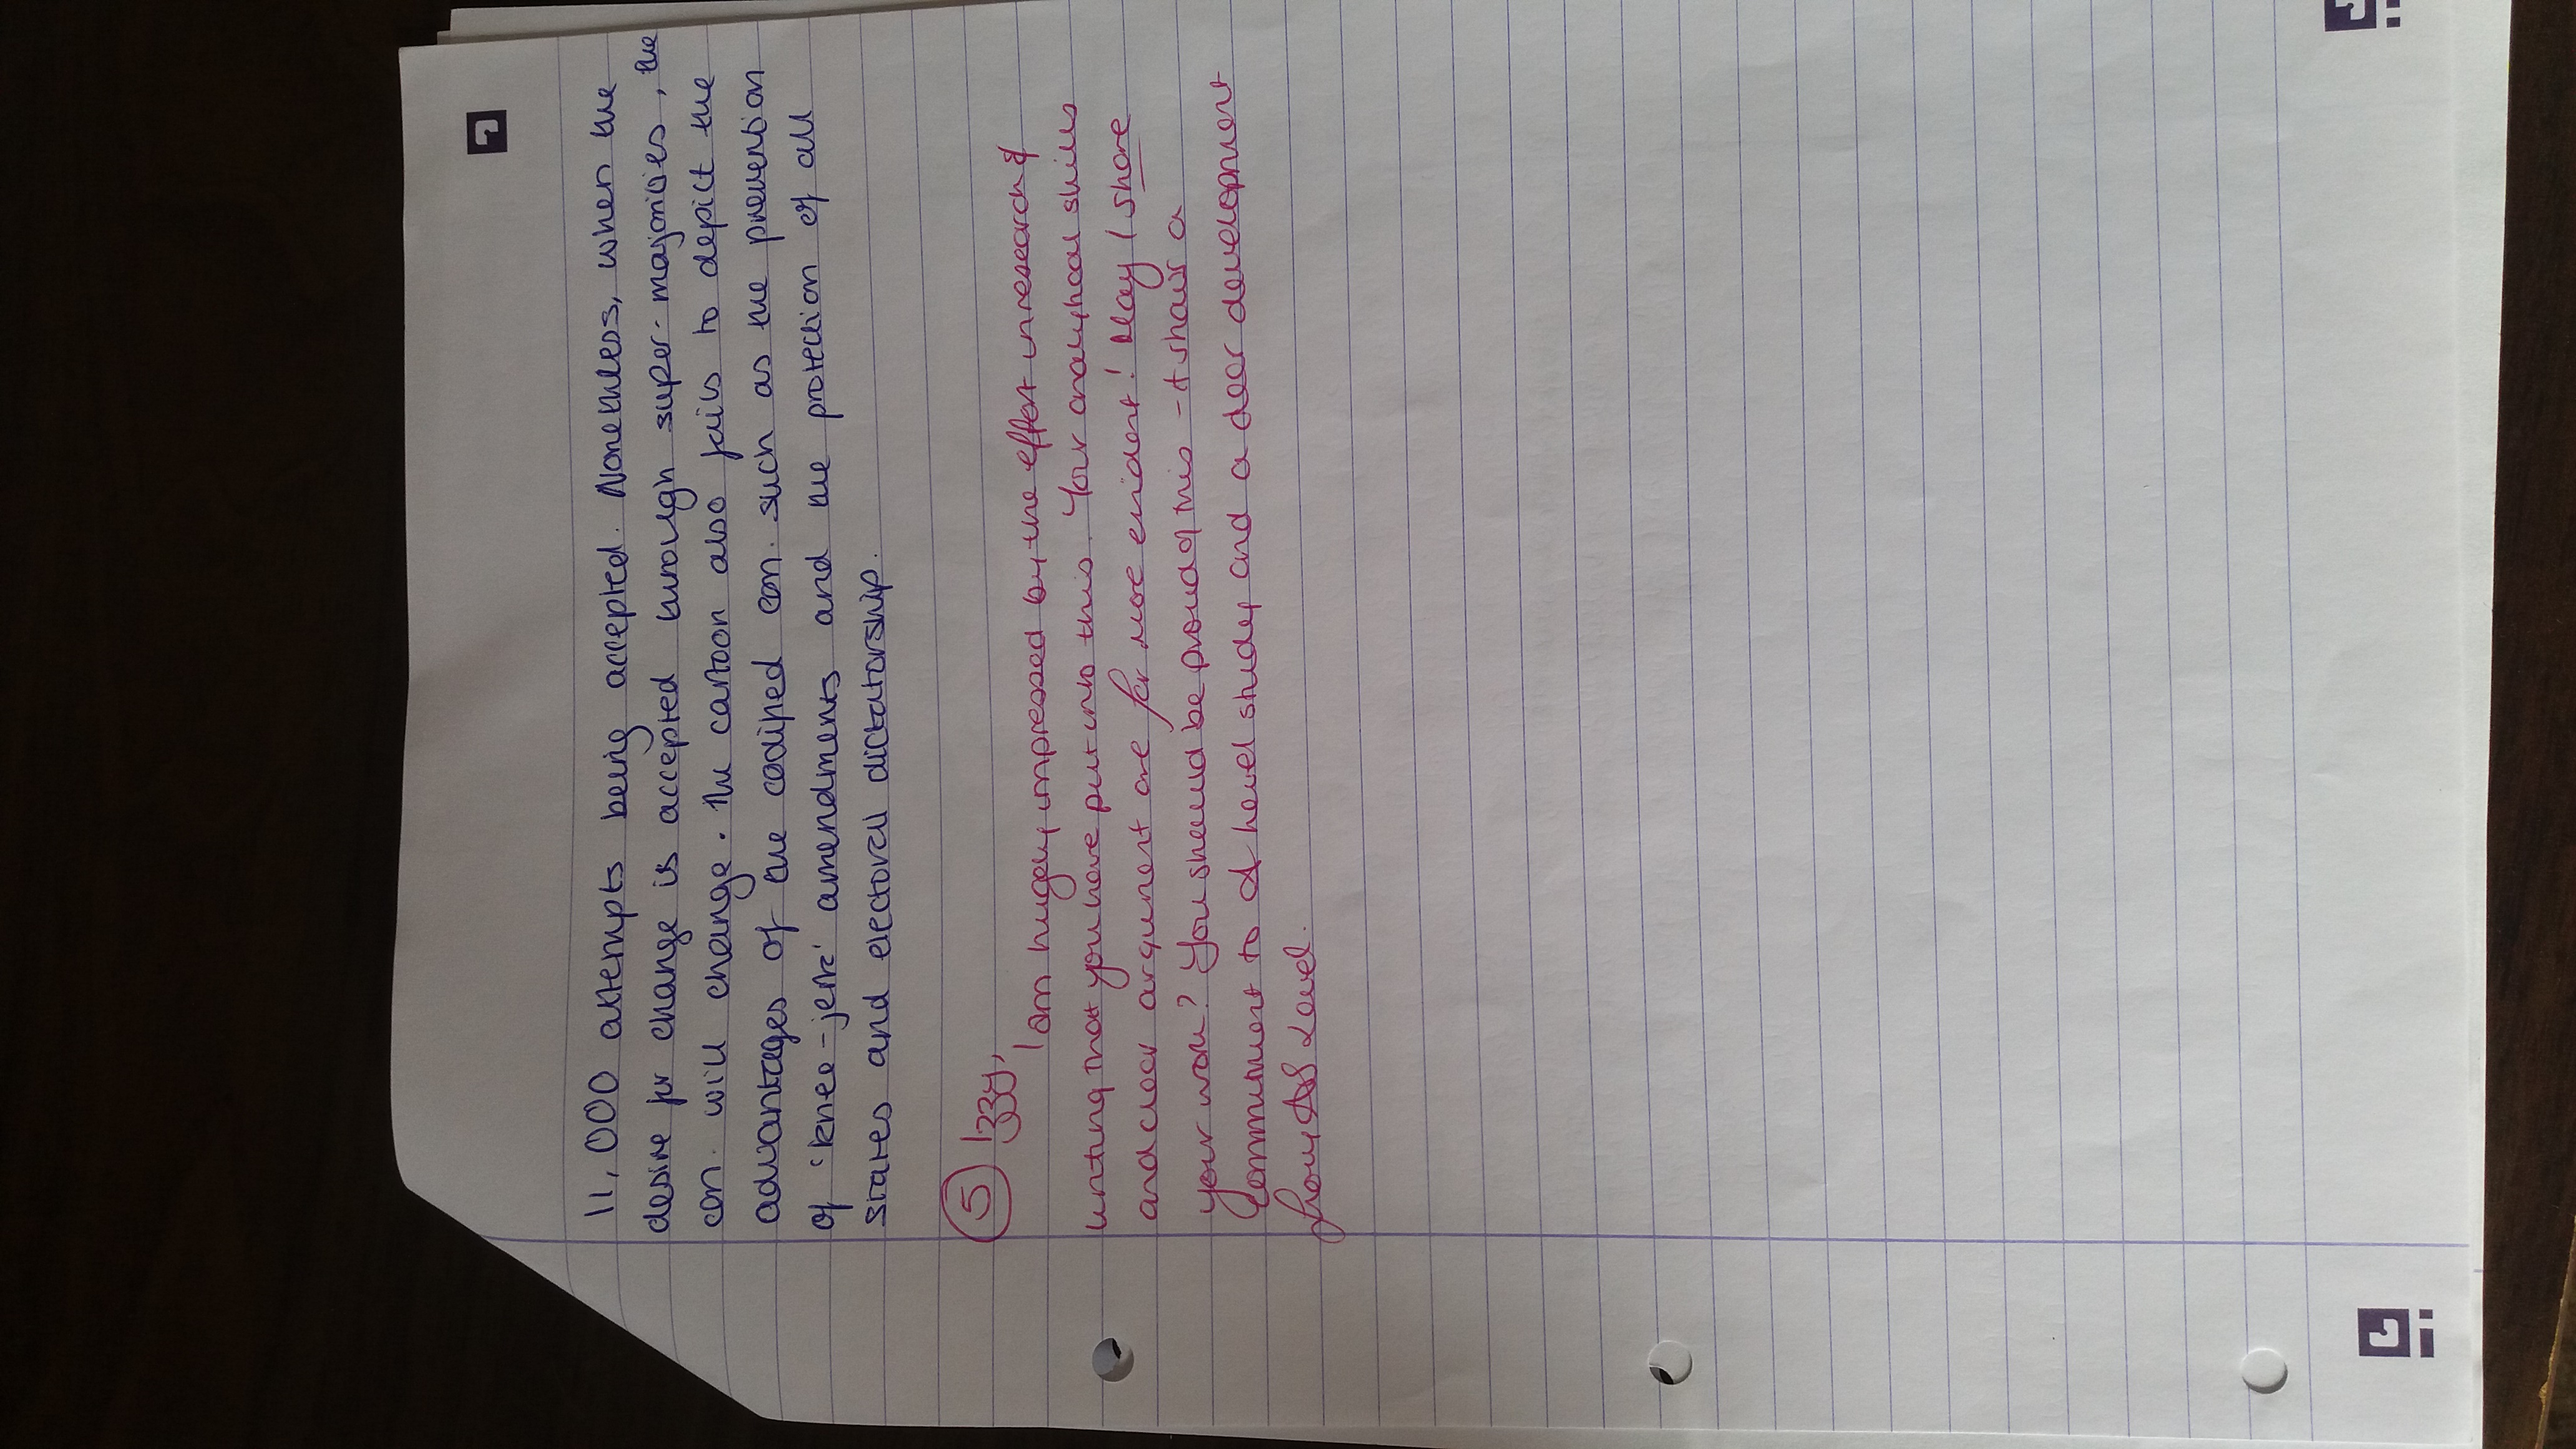 11,000 attempts being accepted. Nonetheless, when the
desire for change is accepted through super-majorities, the
con. will change. The cartoon also fails to depict the
advantages of the codified con. such as the prevention
of 'knee-jerk' amendments and the protection of all
states and electoral dictatorship.
5 Izzy,
I am hugely impressed by the effort in research &
writing that you have put into this. Your analytical skills
and clear argument are far more evident! May I share
your work? You should be proud of this - it shows a
commitment to A level study and a clear development
from AS Level.